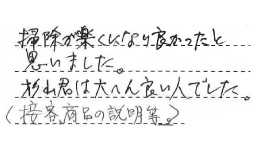 掃除が楽くになり良かったと
思いました。
杉山君は大へん良い人でした。
(接客、商品の説明等。)